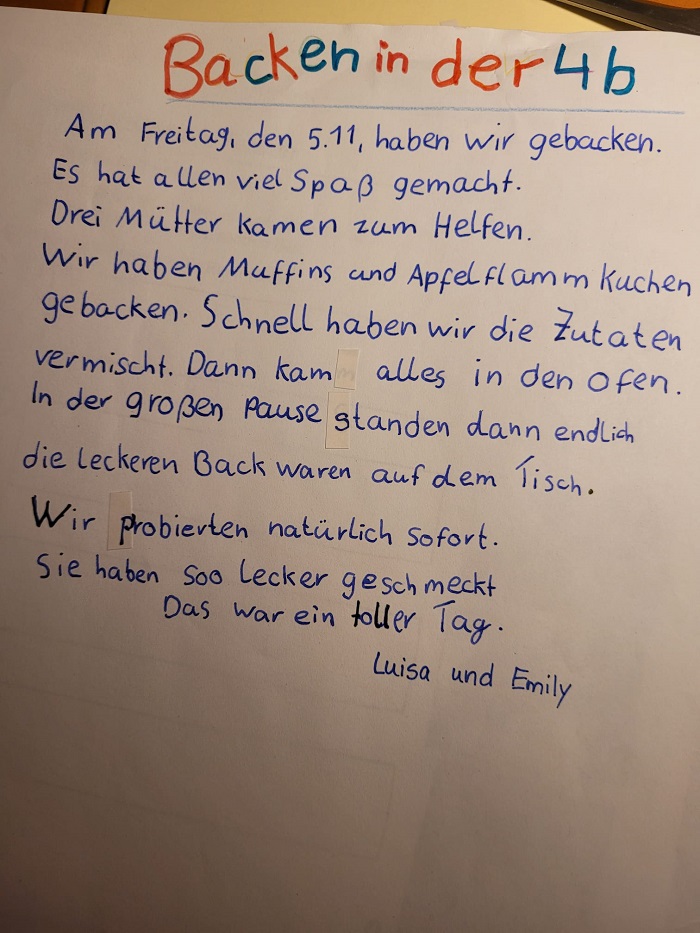 Backen in der 4b
Am Freitag, den 5.11, haben wir gebacken.
Es hat allen viel Spaß gemacht.
Drei Mütter kamen zum Helfen.
Wir haben Muffins und Apfelflamm Kuchen
gebacken. Schnell haben wir die Zutaten
vermischt. Dann kam alles in den Ofen.
In der großen Pause standen dann endlich
die leckeren Back waren auf dem Tisch.
Wir probierten natürlich sofort.
Sie haben soo lecker geschmeckt
Das war ein toller Tag.
Luisa und Emily